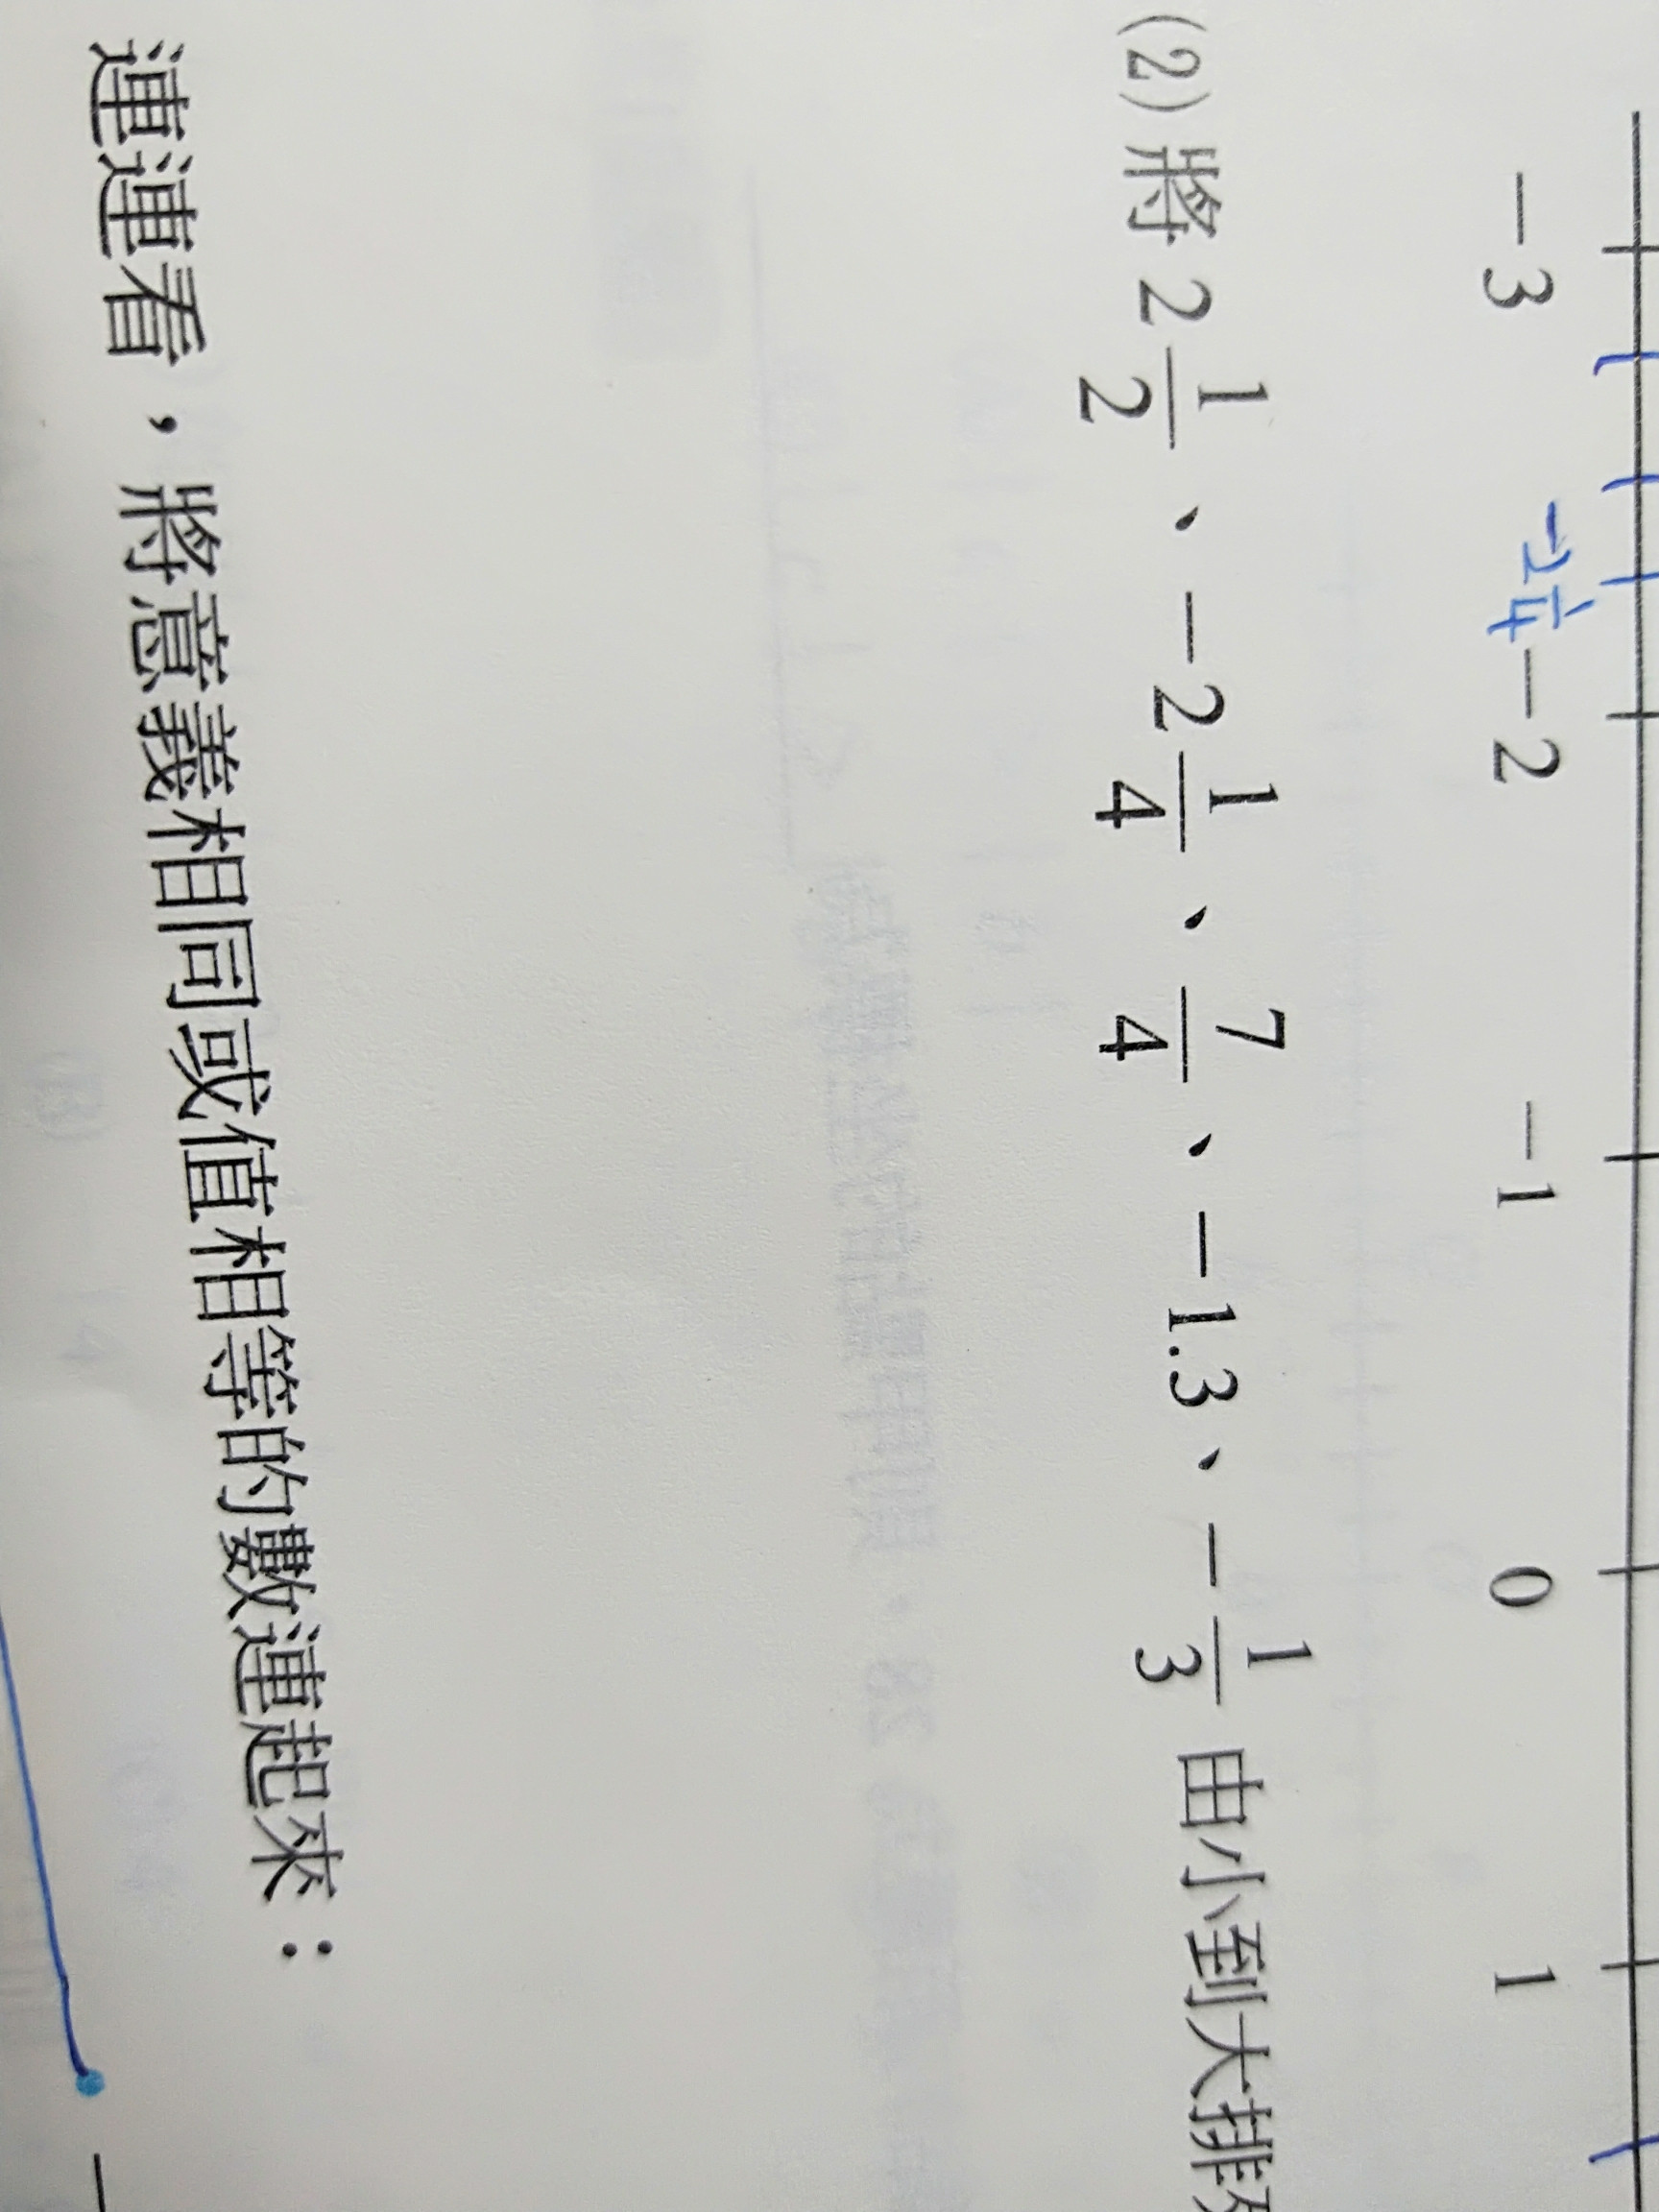 -3 -2 1/4 -2 -1 0 1
(2) 將 2 1/2、-2 1/4、7/4、-1.3、-1/3 由小到大排
連連看，將意義相同或值相等的數連起來：